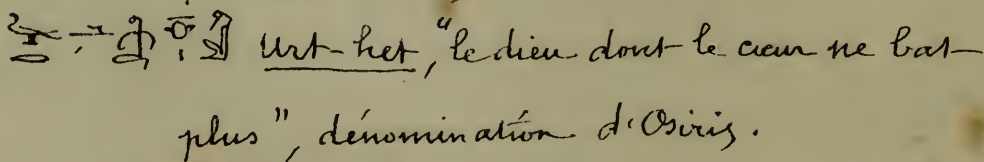 Urt-het, "le dieu dont le cœur ne bat
plus", dénomination d'Osiris.